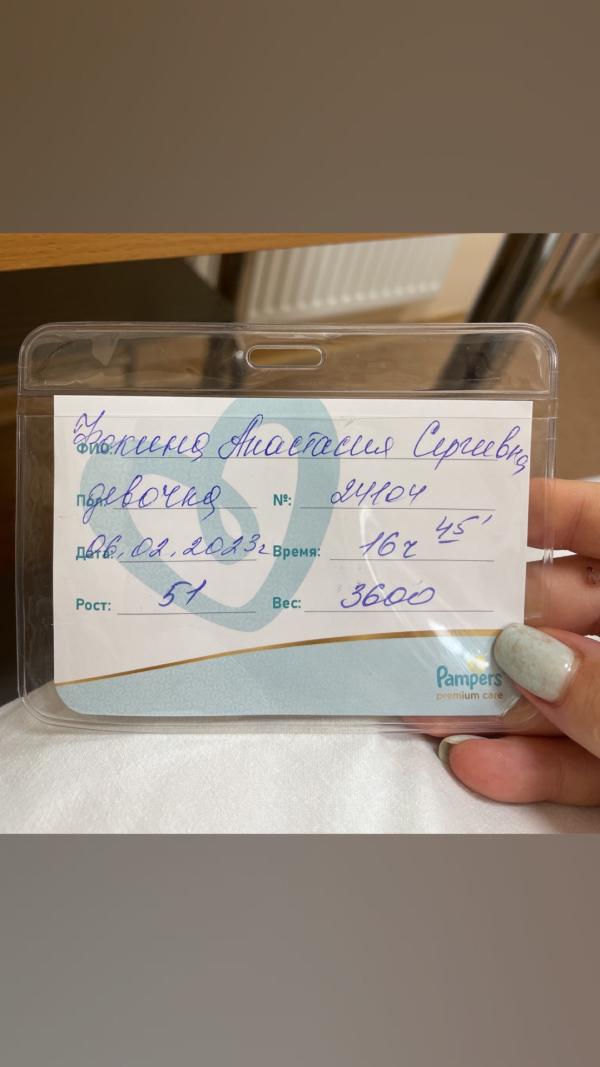 ФИО: Анастасия Сергеевна
Пол: девочка №: 24104
Дата: 06.02.2023г Время: 16ч 45'
Рост: 51 Вес: 3600
Pampers
premium care